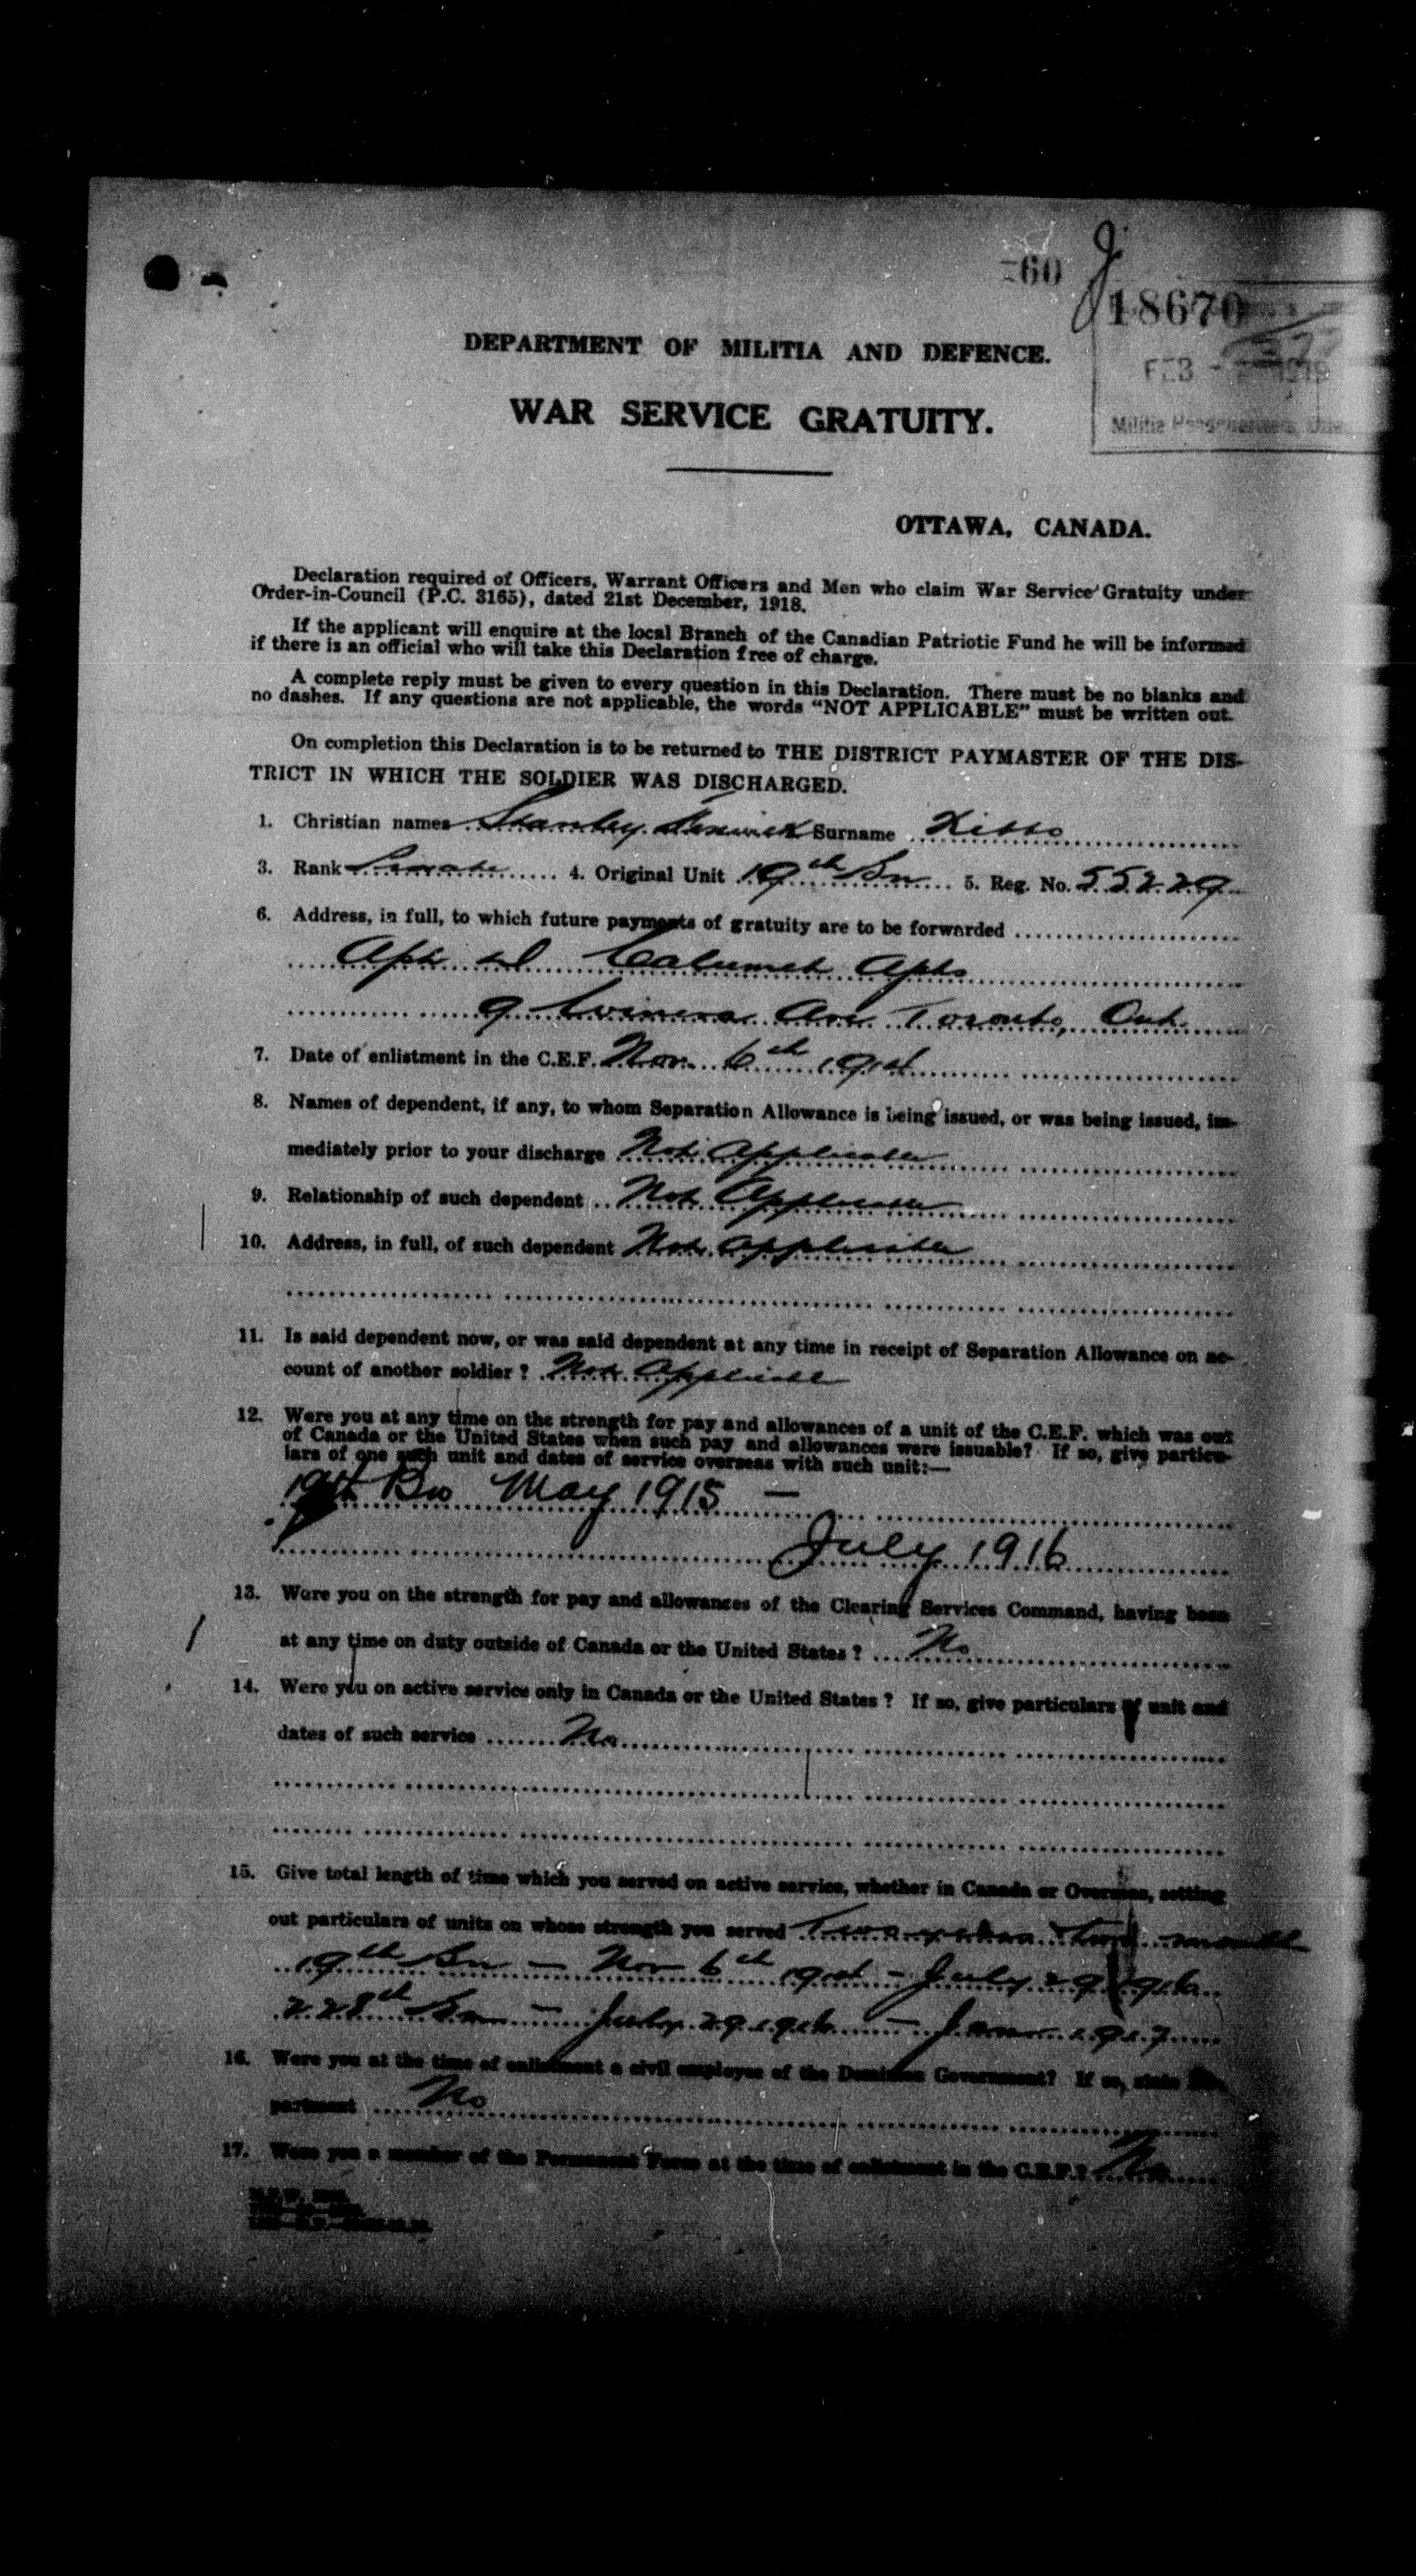 60
18670
DEPARTMENT OF MILITIA AND DEFENCE.
FEB - 1919
WAR SERVICE GRATUITY.
Militia Headquarters,
OTTAWA, CANADA.
Declaration required of Officers, Warrant Officers and Men who claim War Service Gratuity under
Order-in-Council (P.C. 3165), dated 21st December, 1918.
If the applicant will enquire at the local Branch of the Canadian Patriotic Fund he will be informed
if there is an official who will take this Declaration free of charge.
A complete reply must be given to every question in this Declaration. There must be no blanks and
no dashes. If any questions are not applicable, the words "NOT APPLICABLE" must be written out.
On completion this Declaration is to be returned to THE DISTRICT PAYMASTER OF THE DIS-
TRICT IN WHICH THE SOLDIER WAS DISCHARGED.
1. Christian names Stanley Surname
3. Rank Private 4. Original Unit 19th Bn 5. Reg. No. 55229
6. Address, in full, to which future payments of gratuity are to be forwarded
Apt Calumet Apts
9 Ave Toronto, Ont.
7. Date of enlistment in the C.E.F. Nov. 6th 1914
8. Names of dependent, if any, to whom Separation Allowance is being issued, or was being issued, im-
mediately prior to your discharge Not Applicable
9. Relationship of such dependent Not Applicable
10. Address, in full, of such dependent Not Applicable
11. Is said dependent now, or was said dependent at any time in receipt of Separation Allowance on ac-
count of another soldier? Not
12. Were you at any time on the strength for pay and allowances of a unit of the C.E.F. which was out
of Canada or the United States when such pay and allowances were issuable? If so, give particu-
lars of one such unit and dates of service overseas with such unit:—
19th Bn May 1915 —
July 1916
13. Were you on the strength for pay and allowances of the Clearing Services Command, having been
at any time on duty outside of Canada or the United States? No
14. Were you on active service only in Canada or the United States? If so, give particulars of unit and
dates of such service No
15. Give total length of time which you served on active service, whether in Canada or Overseas, setting
out particulars of units on whose strength you served Two years two
19th Bn — Nov 6th 1914 — July 29 1916
228th Bn — July 29 1916 — Jan 1917
16. Were you at the time of enlistment a civil employee of the Dominion Government? If so, state De-
partment No
17. Were you a member of the Permanent Force at the time of enlistment in the C.E.F.? No